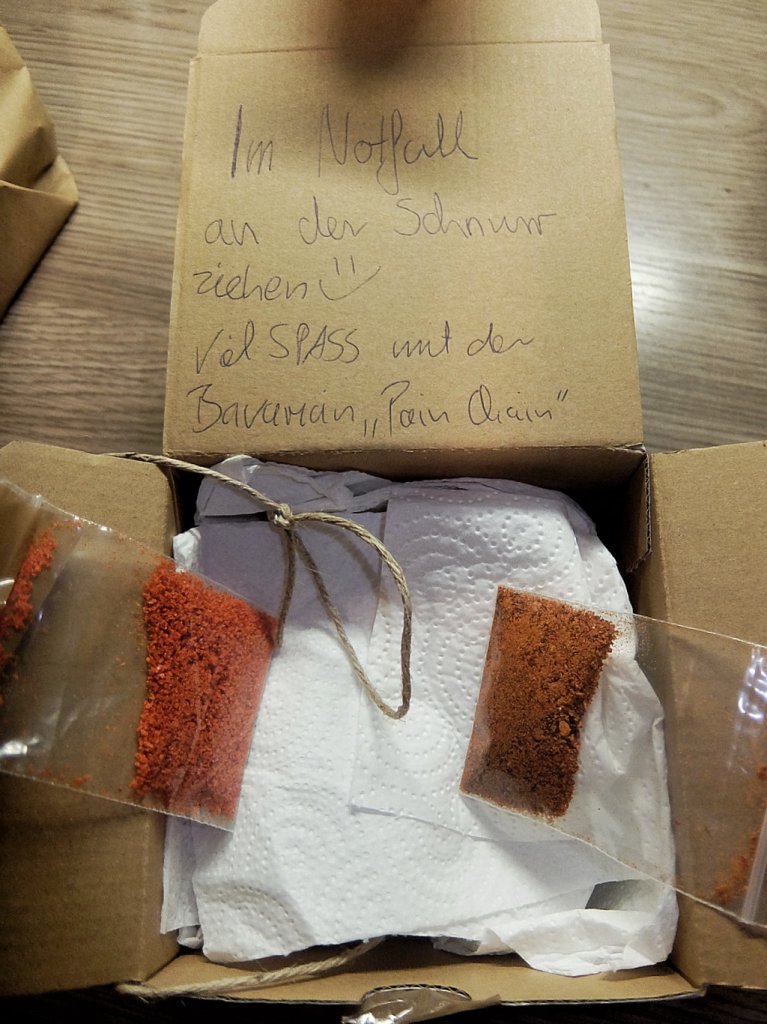 Im Notfall
an der Schnurr
ziehen
Viel SPASS mit der
Bavarian „Pain Chain"